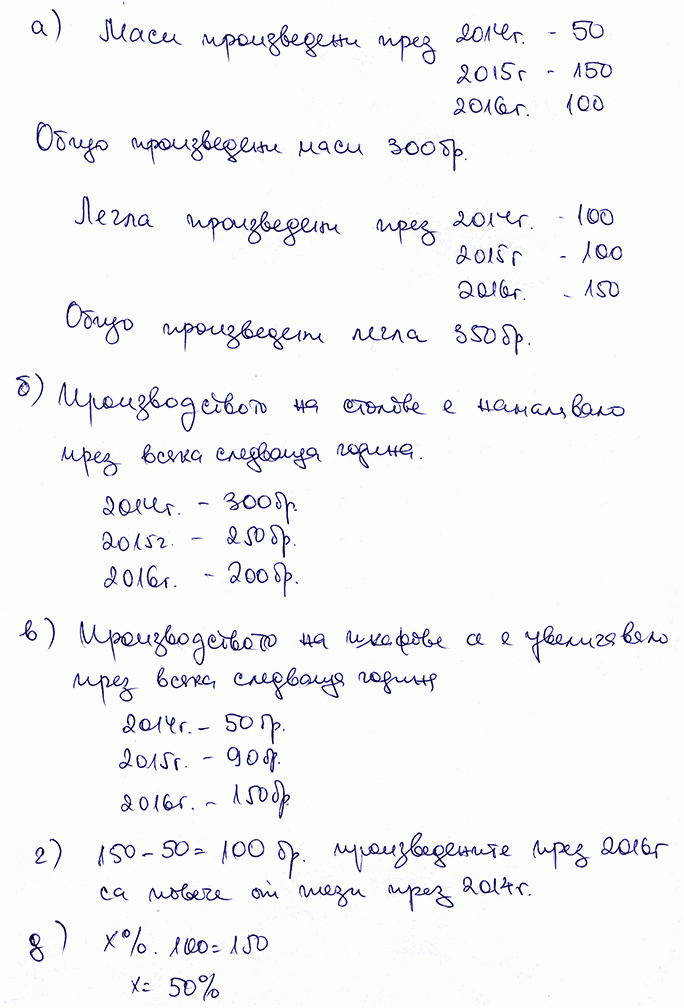 а) Маси произведени през 2014г. - 50
2015г - 150
2016г. 100
Общо произведени маси 300бр.
Легла произведени през 2014г. - 100
2015г - 100
2016г. - 150
Общо произведени легла 350бр.
б) Производството на столове е намалявало
през всяка следваща година.
2014г. - 300бр.
2015г. - 250бр.
2016г. - 200бр.
в) Производството на шкафове се е увеличавало
през всяка следваща година
2014г. - 50бр.
2015г. - 90бр.
2016г. - 150бр
г) 150-50=100 бр. произведените през 2016г
са повече от тези през 2014г.
д) x%. 100=150
x= 50%